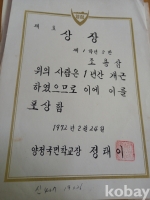 제 호
상 장
제 1 학년 2 반
위의 사람은 1년간 개근
하였으므로 이에 이를
포상함
1992년 2월 26일
양정국민학교장 정태
kobay